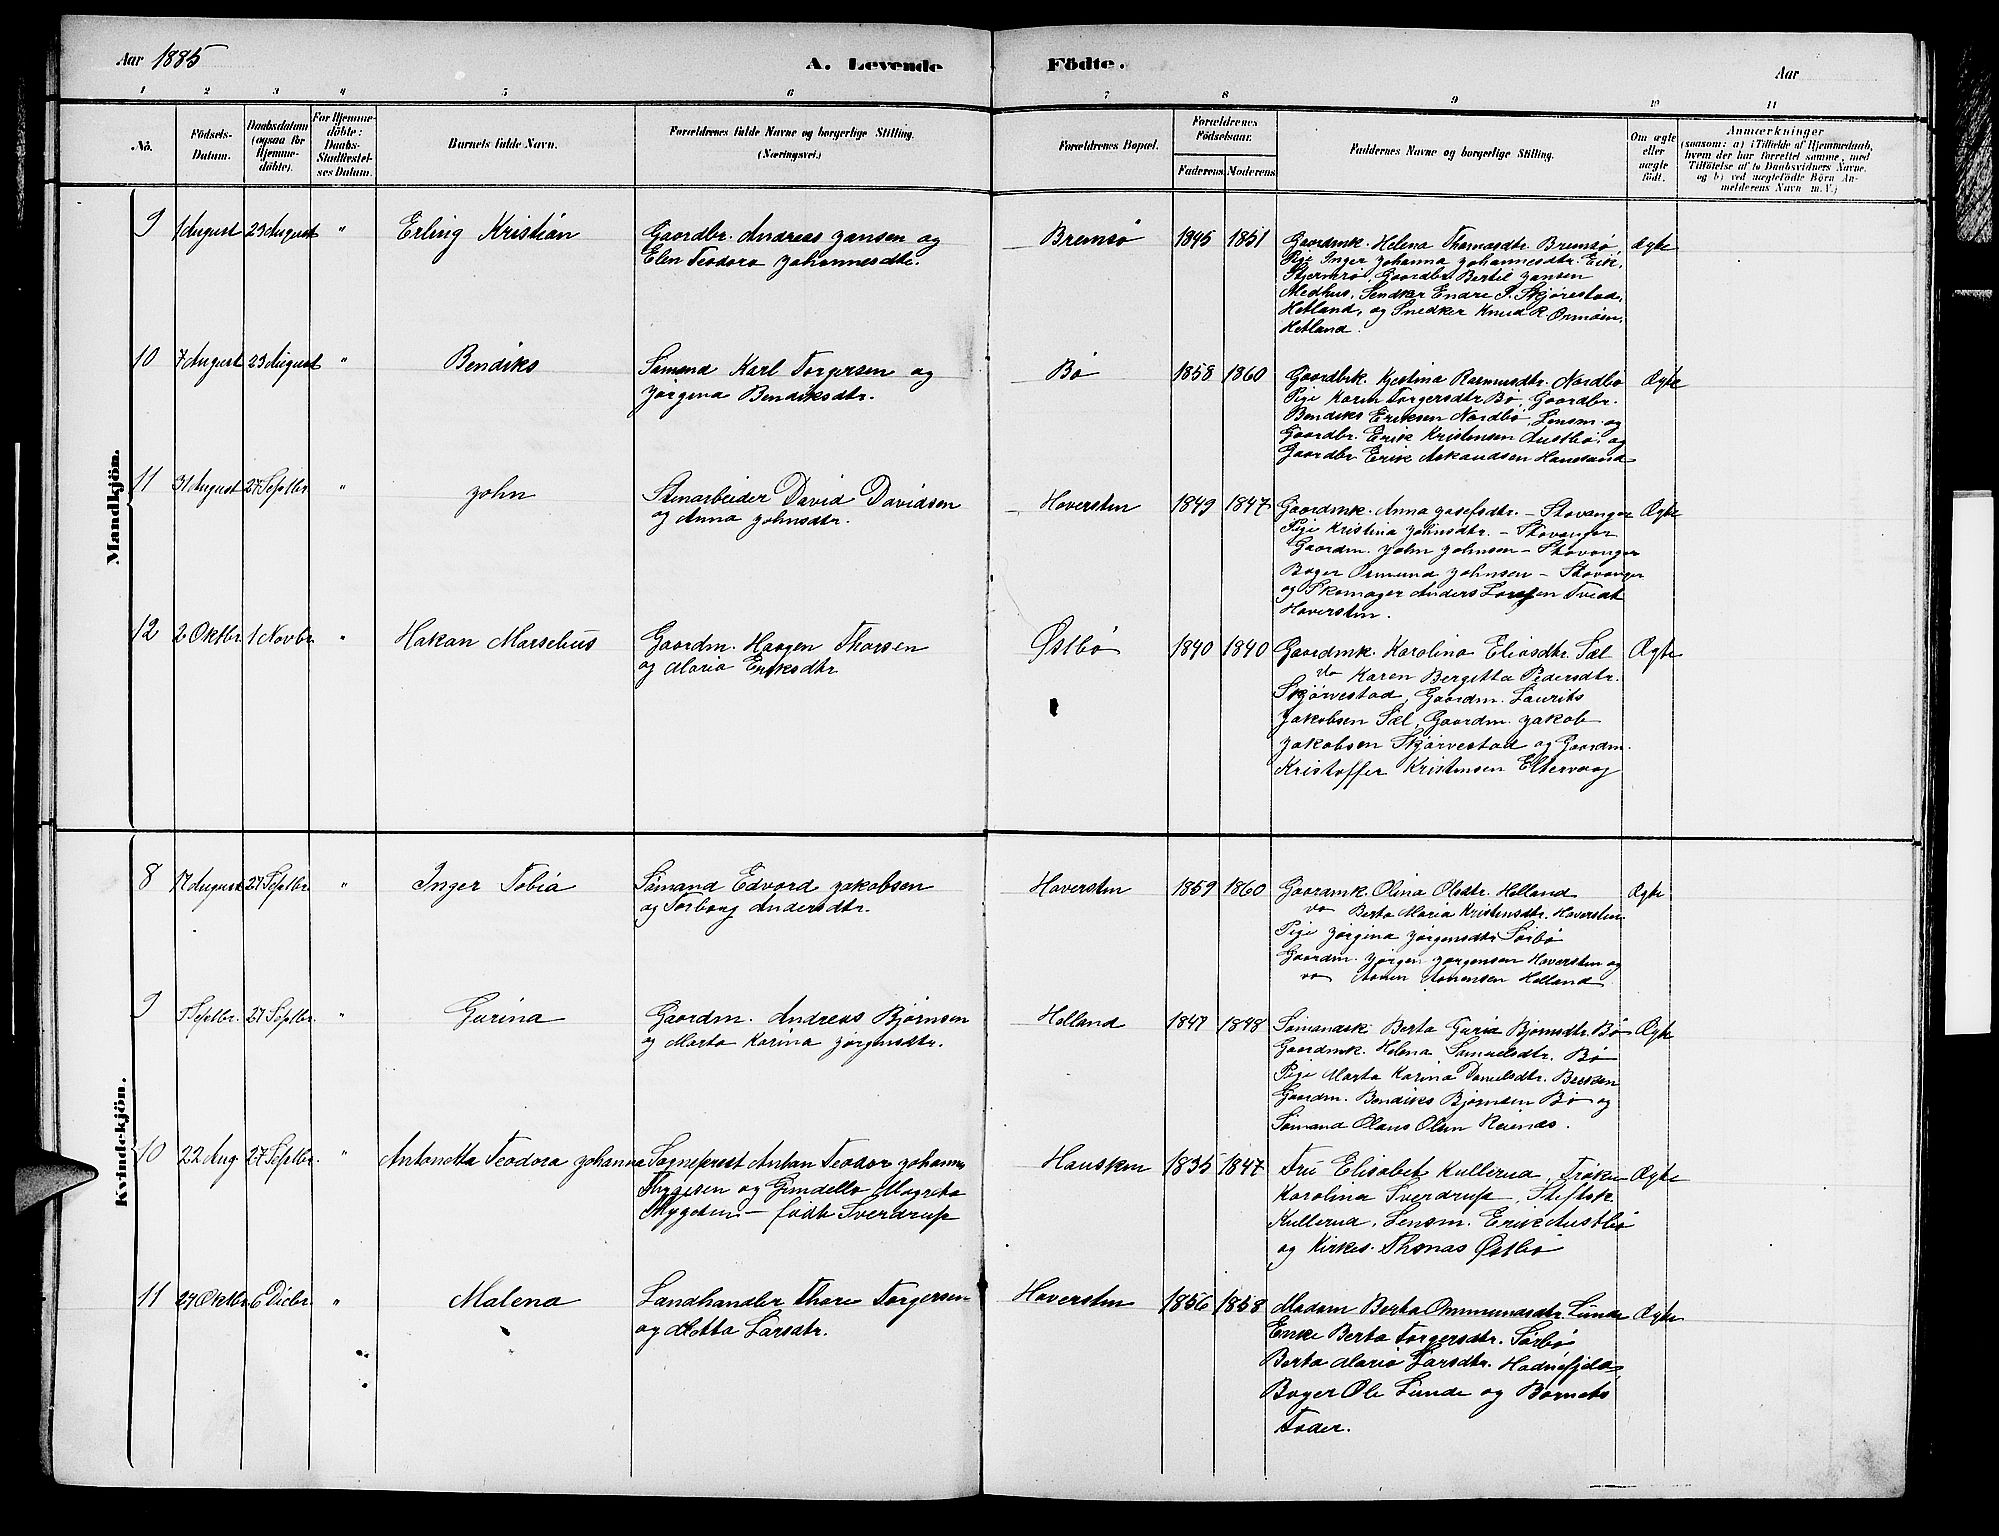 Aar 1885
A. Levende
Födte.
Aar
1 2 3 4 5 6 7 8 9 10 11
No.
Födsels-Datum.
Daabsdatum (ogsaa for Hjemmedöbte).
For Hjemmedöbte: Daabs-Stadfæstelses Datum.
Barnets fulde Navn.
Forældrenes fulde Navne og borgerlige Stilling. (Næringsvei.)
Forældrenes Bopæl.
Forældrenes Födselsaar.
Faderens. Moderens.
Faddernes Navne og borgerlige Stilling.
Om ægte eller uægte födt.
Anmærkninger
(saasom: a) i Tilfælde af Hjemmedaab,
hvem der har forrettet samme, med
Tilföielse af to Daabsvidners Navne,
og b) ved uægtefödte Börn Anmelderens Navn m. V.)
Mandkjön.
9 1 August 23 August " Erling Kristian
Gaardbr. Andreas Jansen og
Elen Teodora Johannesdtr.
Bremsø 1845 1851
Gaardmk. Helena Thomasdtr. Bremsø,
Pige Inger Johanna Johannesdtr. Eik,
Stjernrø, Gaardbr. Bertil Jansen
Medhus, Snedker Endre P. Skjørestad,
Hetland, og Snedker Knud R. Ormøen,
Hetland.
Ægte
10 7 August 23 August " Bendiks
Sømand Karl Torgersen og
Jørgena Bendiksdtr.
Bø 1858 1860
Gaardbrk. Kjestina Rasmusdtr. Nordbø
Pige Karen Torgersdtr Bø, Gaardbr.
Bendiks Eriksen Nordbø, Lensm. og
Gaardbr. Erik Kristensen Austbø, og
Gaardbr Erik Askaudsen Hausand
Ægte
11 31 August 27 Septbr " John
Stenarbeider David Davidsen
og Anna Johnsdtr.
Haversten 1849 1847
Gaardmk. Anna Josefsdtr. – Stavanger
Pige Kristina Johnsdtr. – Stavanger
Gaardm. John Johnsen – Stavanger
Bager Osmund Johnsen – Stavanger
og Skomager Anders Tveit
Haversten.
Ægte
12 2 Oktbr 1 Novbr " Hakan Marselius
Gaardm. Haagen Thorsen
og Maria Eriksdtr.
Østbø 1840 1840
Gaardmk. Karolina Eliasdtr. Sæl
do Karen Bergitta Pedersdtr.
Skjørvestad, Gaardm. Laurits
Jakobsen Sæl, Gaardm. Jakob
Jakobsen Skjørvestad og Gaardm.
Kristoffer Kristensen Eltervaag
Ægte
Kvindekjön.
8 17 August 27 Septbr " Inger Tobia
Sømand Edvard Jakobsen
og Torborg Andersdtr.
Haversten 1859 1860
Gaardmk. Olina Olsdtr. Helland
do Berta Maria Kristensdtr. Haversten
Pige Jørgina Jørgensdtr Sørbø
Gaardm. Jørgen Jørgensen Haversten og
do Aanen Aanensen Helland.
Ægte
9 1 Septbr. 27 Septbr. " Gurina
Gaardm. Andreas Bjørnsen
og Marta Karina Jørgensdtr.
Helland 1847 1848
Sømandsk. Berta Guria Bjørnsdtr. Bø
Gaardmk. Helena Samuelsdtr. Bø
Pige Marta Karina Danielsdtr. Bakken
Gaardm. Bendiks Bjørnsen Bø og
Sømand Olaus Olsen Reianes.
Ægte
10 22 Aug 27 Septbr. " Antonetta Teodora Johanna
Sogneprest Anton Teodor Johannes
Thygesen og Gundella Magreta
Thygesen – født Sverdrup
Hausken 1835 1847
Fru Elisabet Kullerud, Frøken
Karolina Sverdrup, Stiftsk.
Kullerud, Lensm. Erik Austbø
og Kirkes. Thomas Østbø
Ægte
11 24 Oktbr. 6 Decbr. " Malena
Landhandler Thore Torgersen
og Metta Larsdtr.
Haversten 1856 1858
Madam Berta Ommundsdtr. Lunde
Enke Berta Torgersdtr. Sørbø
Berta Maria Larsdtr. Hadnefjeld,
Bager Ole Lunde og Barnets
Fader.
Ægte